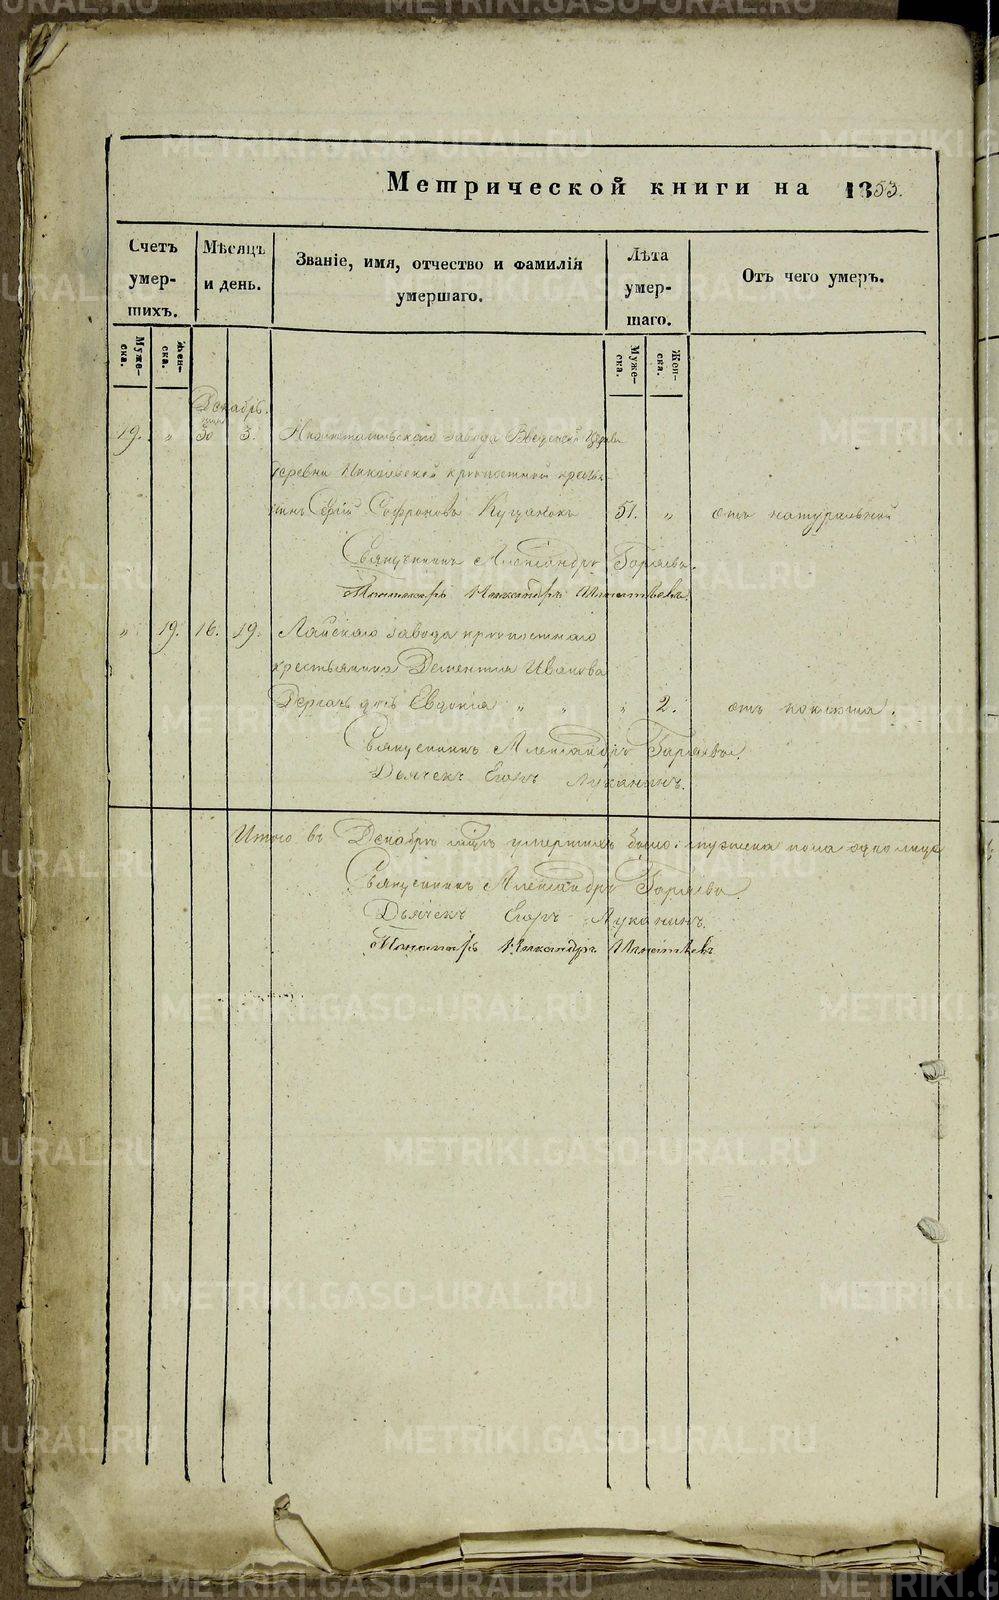 Метрической книги на 1853.
Счетъ умер-шихъ.
Мѣсяцъ и день.
Званіе, имя, отчество и фамилія
умершаго.
Лѣта умер-шаго.
Отъ чего умеръ.
Муже-ска.
Жен-ска.
Муже-ска.
Жен-ска.
Декабрь
19. " 30 3. завода Введенской церкви
деревни Никольской крѣпостной крестья-
нинъ Сергій Софроновъ 51. " отъ натуральной
Священникъ Александръ Горяевъ.
Пономарь Никандръ
" 19. 16. 19. Лайскаго завода крѣпостнаго
крестьянина Дементія Иванова
дочь Евдокія " " " 2. отъ поноса.
Священникъ Александръ Горяевъ.
Дьячекъ Егоръ Луканинъ.
Итого въ Декабрѣ мцѣ умершихъ было: мужеска пола одно лице
Священникъ Александръ Горяевъ.
Дьячекъ Егоръ Луканинъ.
Пономарь Никандръ
METRIKI.GASO-URAL.RU